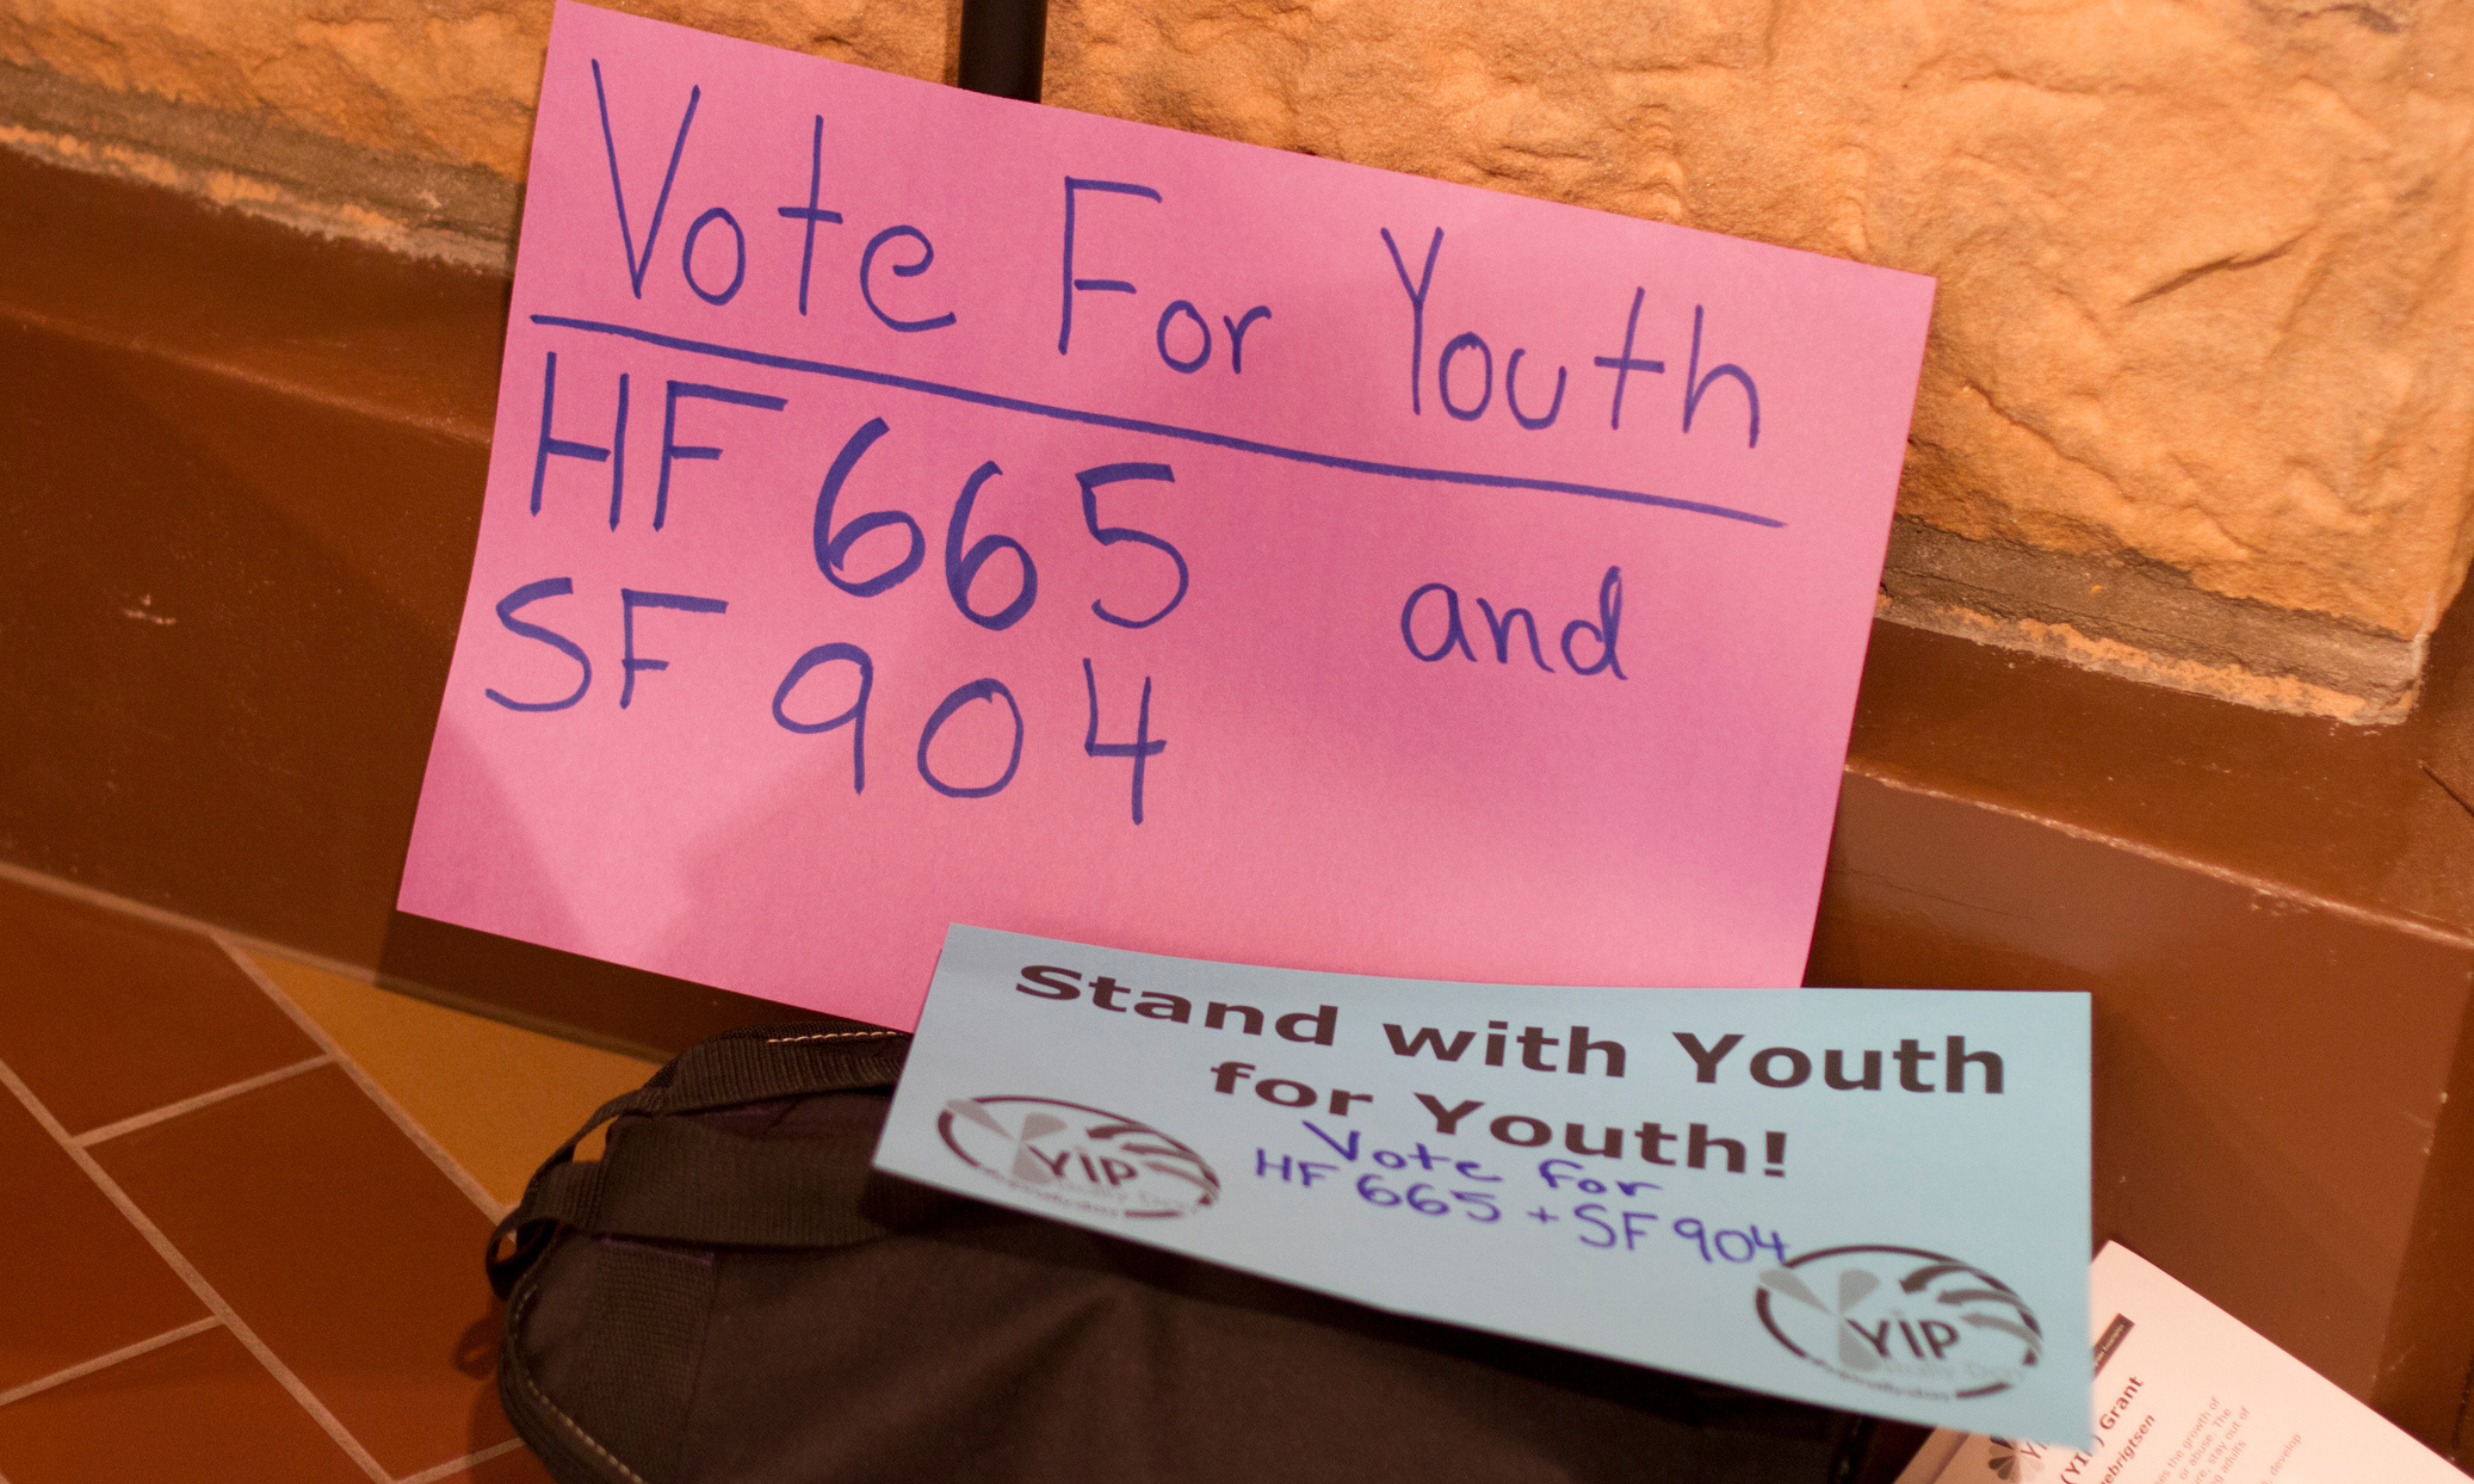 Vote For Youth
HF 665 and
SF 904
Stand with Youth
for Youth!
Vote for
HF 665 + SF 904
YIP
YIP
Grant